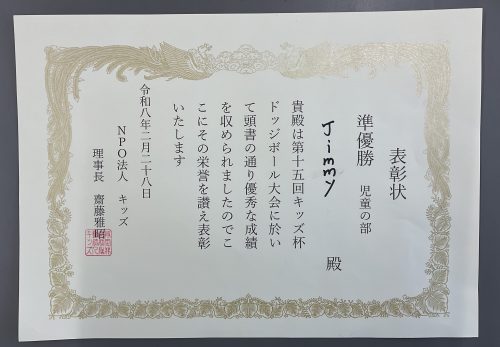 表彰状
準優勝 児童の部
Jimmy 殿
貴殿は第十五回キッズ杯
ドッジボール大会に於い
て頭書の通り優秀な成績
を収められましたのでこ
こにその栄誉を讃え表彰
いたします
令和八年二月二十八日
NPO法人 キッズ
理事長 齋藤雅昭